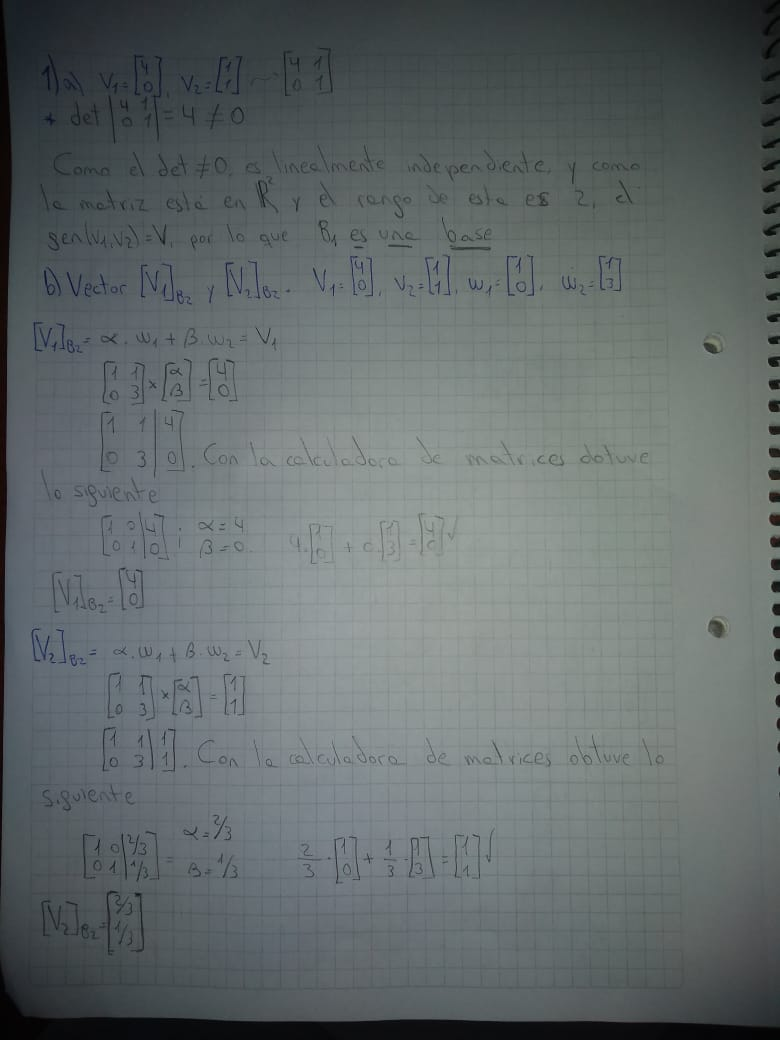 1) a) V₁=[4 0], V₂=[1 1] ~ [4 1 0 1]
* det |4 1 0 1| = 4 ≠ 0
Como el det ≠ 0, es linealmente independiente, y como
la matriz está en R² y el rango de esta es 2, el
gen(v₁,v₂)=V, por lo que B₁ es una base
b) Vector [V₁]B₂ y [V₂]B₂. V₁=[4 0], V₂=[1 1], w₁=[1 0], w₂=[1 3]
[V₁]B₂= α.w₁ + β.w₂ = V₁
[1 1 0 3]×[α β]=[4 0]
[1 1 | 4 0 3 | 0]. Con la calculadora de matrices obtuve
lo siguiente
[1 0 | 4 0 1 | 0] ; α=4 β=0. 4.[1 0] + 0.[1 3]=[4 0]✓
[V₁]B₂=[4 0]
[V₂]B₂= α.w₁ + β.w₂ = V₂
[1 1 0 3]×[α β]=[1 1]
[1 1 | 1 0 3 | 1]. Con la calculadora de matrices obtuve lo
siguiente
[1 0 | 2/3 0 1 | 1/3] = α=2/3 β=1/3 2/3.[1 0] + 1/3.[1 3]=[1 1]✓
[V₂]B₂=[2/3 1/3]